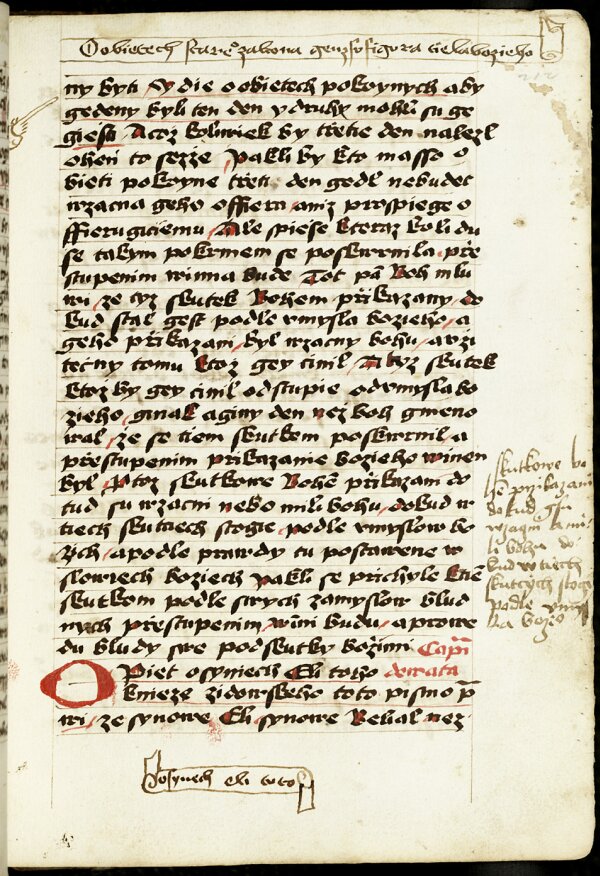 O obietech stareº zakona genz su figura tiela bozieho
212
ny byti / Vydie o obietech pokoynych aby
gedeny byli ten den y druhy mohu su ge
giesti A coz koliwiek by trzetie den nalezl
ohen to sezze / Pakli by kto masso o
bieti pokoyne trzeti den gedl nebudet
wzacna geho offiera / aniz prospiege o
ffierugiciemu / Ale spiese kteraz koli du
se takym pokrmem se poskwrnila / prze
stupenim winna bude Tot pan Boh mlu
wi / ze tyz skutek Bohem przikazany / do
kud stal gest podle vmysla bozieho / a
geho przikazani / byl wzacny bohu / a vzi
tecny tomu ktoz gey cinil / A tyz skutek
ktoz by gey cinil odstupie od vmysla bo
zieho / ginak a giny den nez boh gmeno
wal / ze se tiem skutkem poskwrnil / a
przestupenim przikazanie bozieho winen
byl / Protoz skutkowe Bohem przikazani do
tud su wzacni nebo mili bohu / dokud w
tiech skutciech stogie podle vmyslow bo
zich / a podle prawdy tu postawene w
slowiech boziech pakli se prichyle tiem
skutkom podle swych zamyslow blud
nych przestupenim winni budu / a prowe
du bludy swe pod skutky bozimi Capi
Opiet o syniech Eli toho dewata
knieze zidowskeho toto pismo pra
wi / ze synowe Eli synowe Belial nez
skutkowe bo
hem przikazani
dokud gsu
wzacni a mi
li bohu do
kud w tiech
skutcych stogie
podle vmys
la bozieº
o synech eli toto